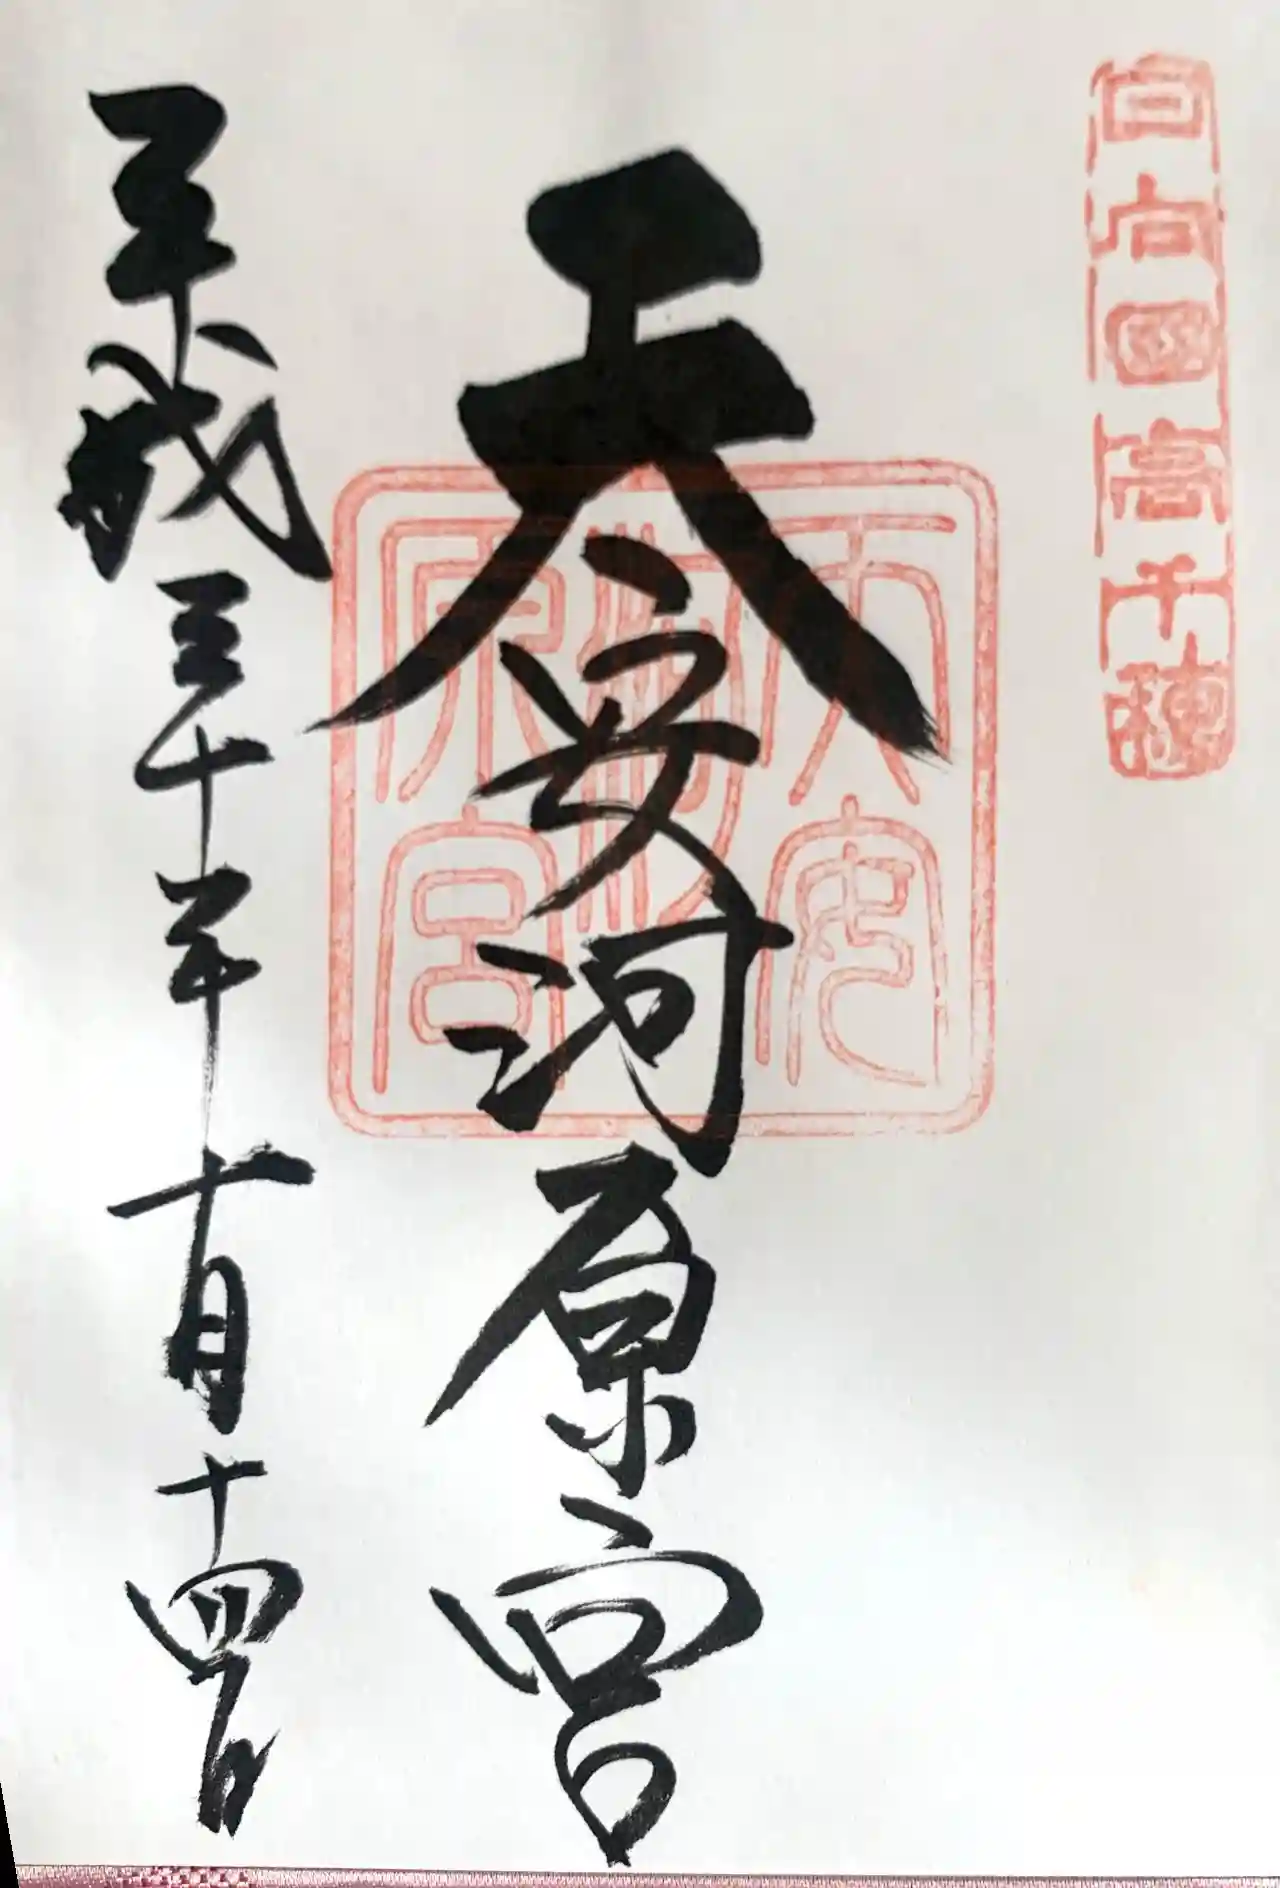 日向國高千穂
天安河原宮
天安河原宮
平成三十年十月十四日